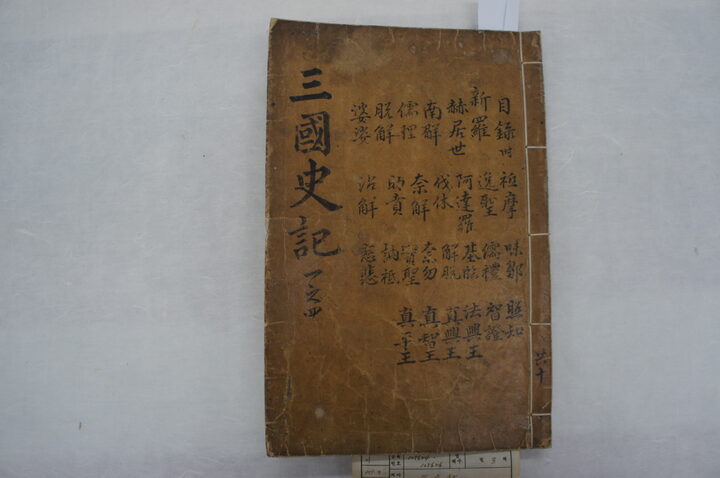 三國史記 一之四
目錄
新羅
赫居世
南解
儒理
脫解
婆娑
祗摩
逸聖
阿達羅
伐休
奈解
助賁
沾解
味鄒
儒禮
基臨
解脫
奈勿
實聖
訥祗
慈悲
照知
智證
法興王
真興王
真智王
真平王
共十